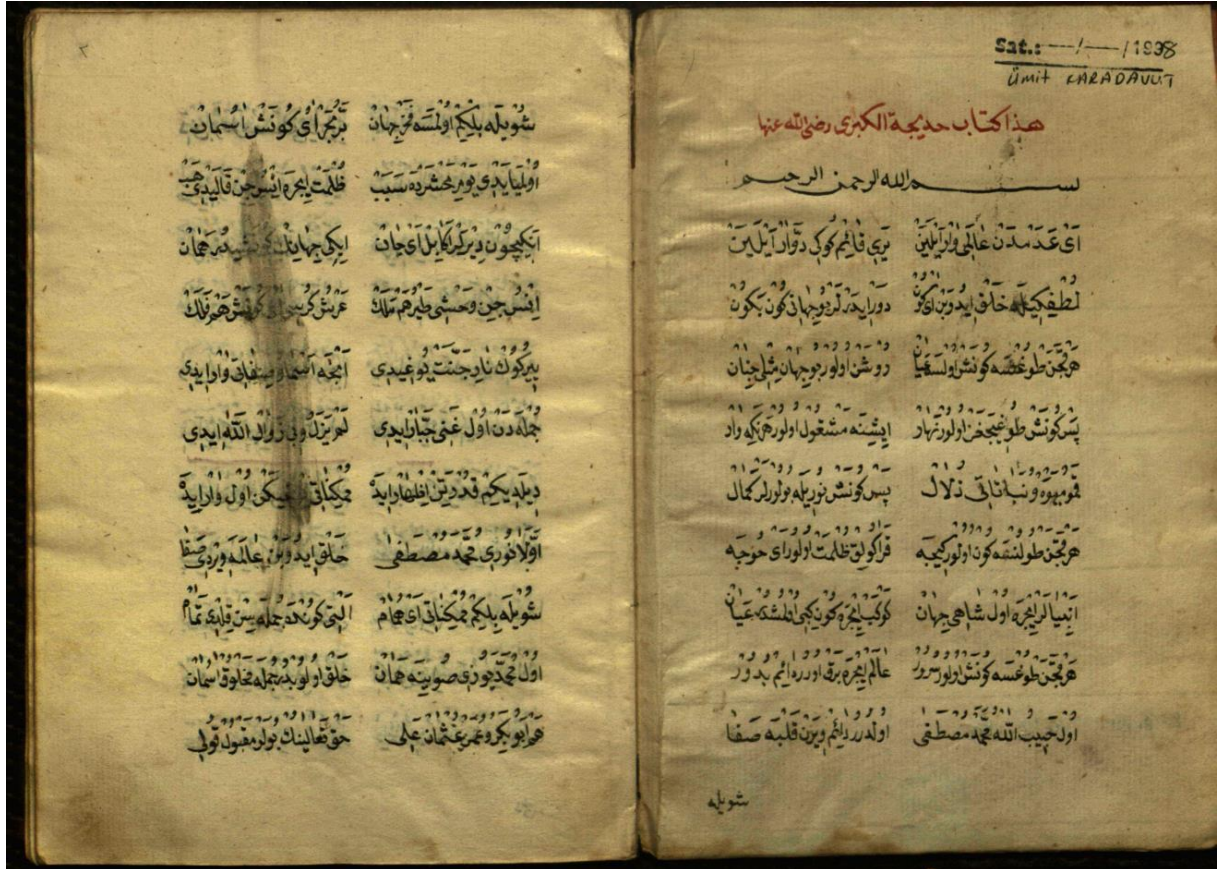 Sat.: —/—/1998
Ümit KARADAVUT
هذا كتاب حديجة الكبرى رضى الله عنها
بسم الله الرحمن الرحيم
اَى عَدَمدَن عَالَمى وَار اَيلَيَن يَرى قَائِم كُوكى دَوَّار اَيلَيَن
لُطفِكيله خَلق ايدوبن اى كون دَور ايدر لر بو جهانى كون بكون
هر قچن طوغسه كونش اولسه عيان روشن اولور بو جهان مثلى جنان
پس كونش طوغيجغز اولور نهار ايشنه مشغول اولور هر نكه وار
قمو ميوه و نباتاتى ذلال پس كونش نوريله بولورلر كمال
هر قچن طولنسه كون اولور كيجه قراكولق ظلمت اولور اى خوجه
انبيالر ايچره اول شاهى جهان كوكب ايچره كون كبى اولمشدر عيان
هر قچن طوغسه كونش اولور سرور عالم ايچره برق اورر دائم بدور
اول حبيب الله محمد مصطفى اولدرر دائم ويرن قلبه صفا
شويله
٢
شويله بلكم اولمسه فخر جهان
اوليايدى يوم محشرده سبب ظلمت ايچره انس جن قاليدى هب
ايكيچون دير اى جان ايكى جهانك همان
انس جن وحشى طير هم ملك عرش كرسى اى كونش هم فلك
يير كوك نار جنت يوغيدى
جمله دن اول غنى جبار ايدى لم يزل الله ايدى
ديلديكم قدرتن اظهار ايده اول وار ايده
اولا نورى محمد مصطفى خلق ايدوبن عالمه ويردى صفا
شويله بلكم ممكناتى اى همام التى كونده جمله سن قلدى تمام
اول محمد يوزى صويينه همان خلق اولوبدر جمله مخلوق اسمان
هم ابو بكر و عمر عثمان على حق تعالينك بولر مقبول قولى